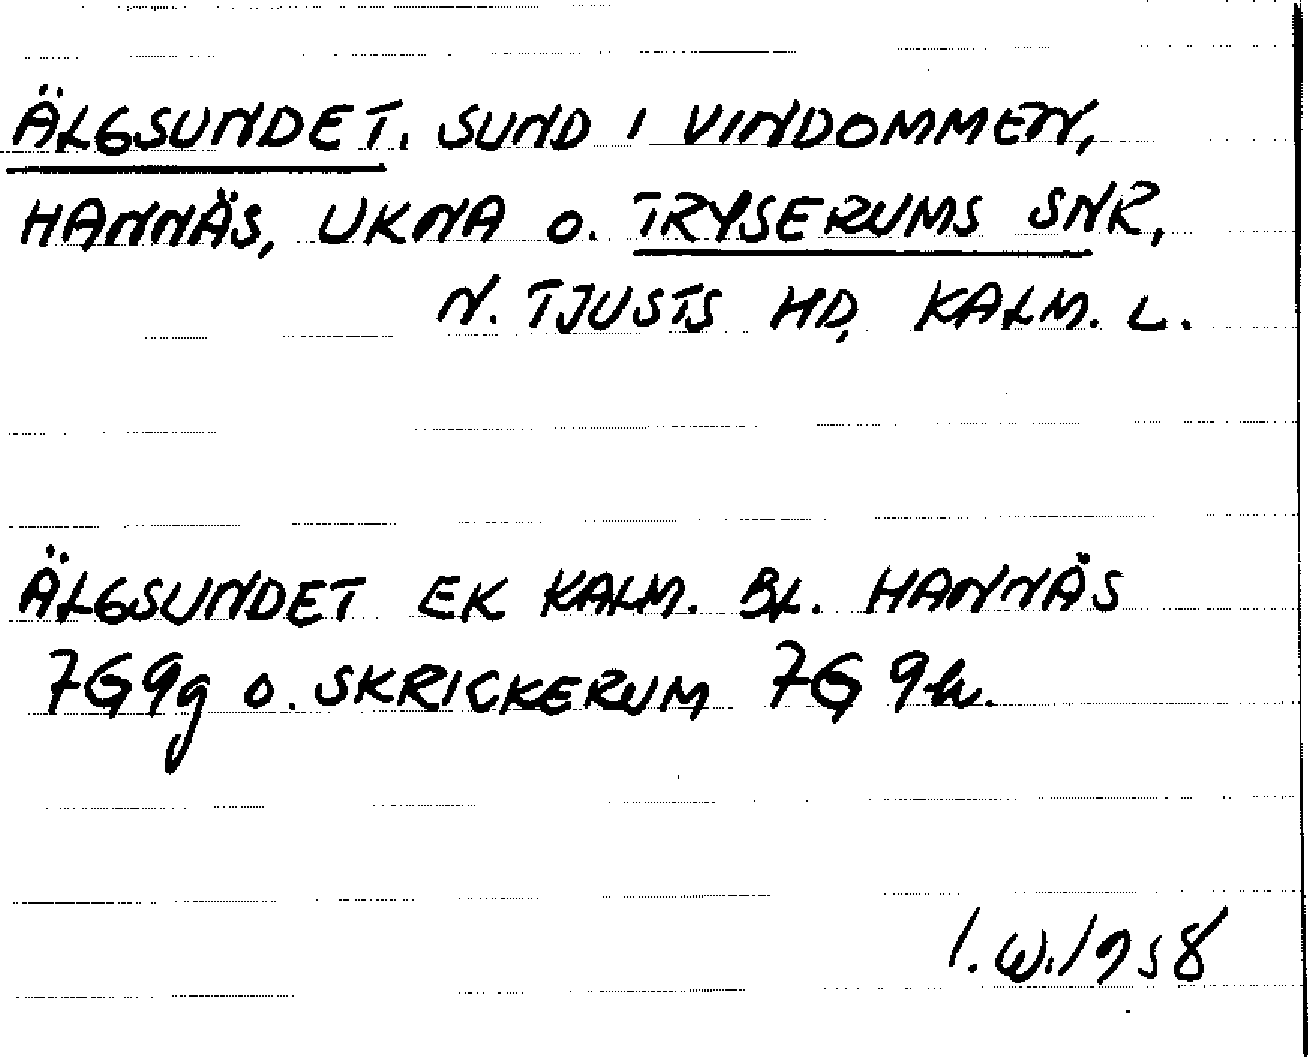 ÄLGSUNDET. SUND I VINDOMMEN,
HANNÄS, UKNA O. TRYSERUMS SNR,
N. TJUSTS HD, KALM. L.
ÄLGSUNDET EK KALM. BL. HANNÄS
7G9g O. SKRICKERUM 7G 9h.
I.W.1958